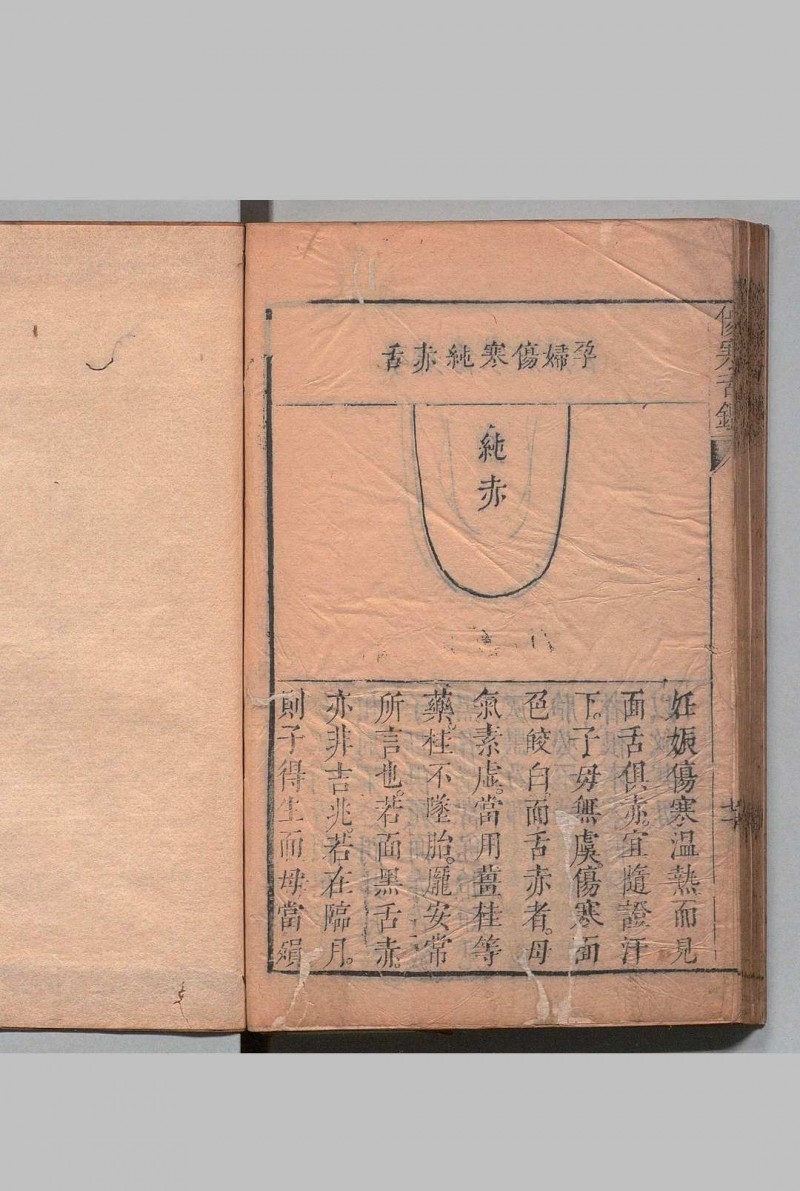 孕婦傷寒純赤舌
純赤
妊娠傷寒溫熱而見
面舌俱赤宜隨證汗
下。子母無虞。傷寒面
色皎白而舌赤者。母
氣素虛。當用薑桂等
藥。桂不墜胎。龐安常
所言也。若面黑舌赤。
亦非吉兆。若在臨月。
則子得生而母當殞
傷寒舌鑑